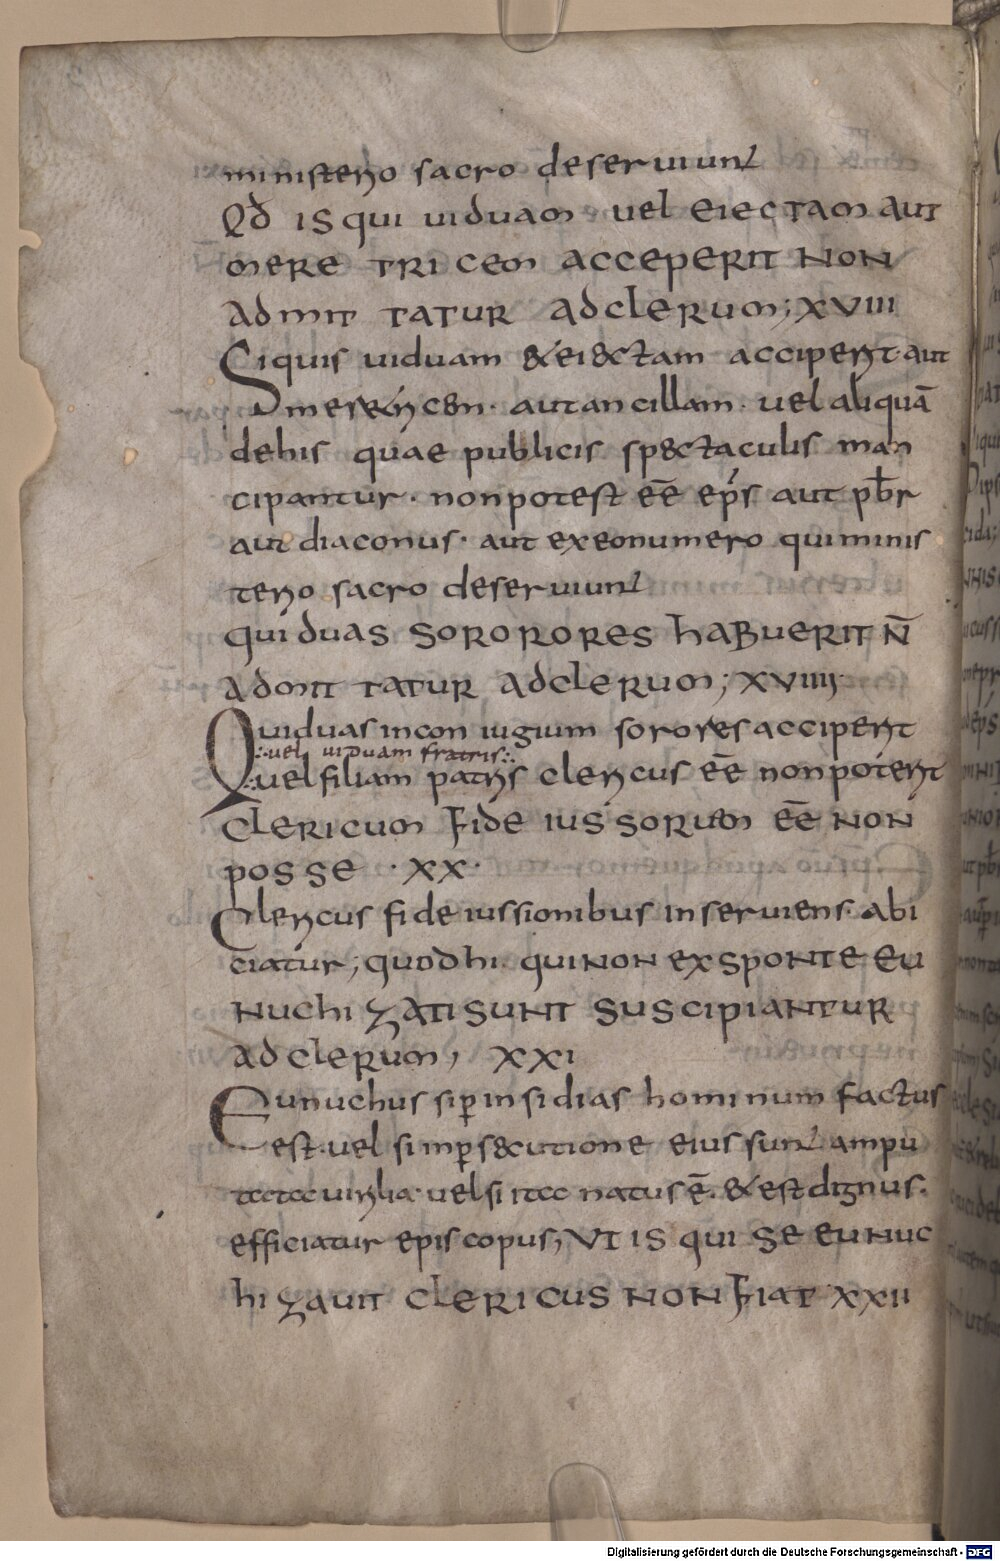 ministerio sacro deseruiunt
Qđ is qui uiduam uel eiectam aut
mere tricem acceperit non
admit tatur ad clerum; XVIII
Siquis uiduam & ei&ctam acciperit aut
meretricem · aut ancillam · uel aliquā
dehis quae publicis sp&ctaculis man
cipantur · non potest eē ep̄s aut pb̄r
aut diaconus · aut ex eo numero qui minis
terio sacro deseruiunt
qui duas sororores habuerit n̄
admit tatur ad clerum; XVIIII
Qui duas in coniugium sorores acciperit
∴uel uiduam fratris∴
∴uel filiam patris clericus eē non poterit
clericum fide iussorum eē non
posse · XX ·
Clericus fide iussionibus inseruiens · abi
ciatur; quod hi qui non ex sponte eu
nuchizati sunt suscipiantur
ad clerum; XXI
Eunuchus si ꝑ insidias hominum factus
est · uel si in ꝑs&cutione eius sunt ampu
tata uirilia · uel si ita natus ē · & est dignus ·
efficiatur episcopus; Vt is qui se eunuc
hizauit clericus non fiat XXII
Digitalisierung gefördert durch die Deutsche Forschungsgemeinschaft - DFG